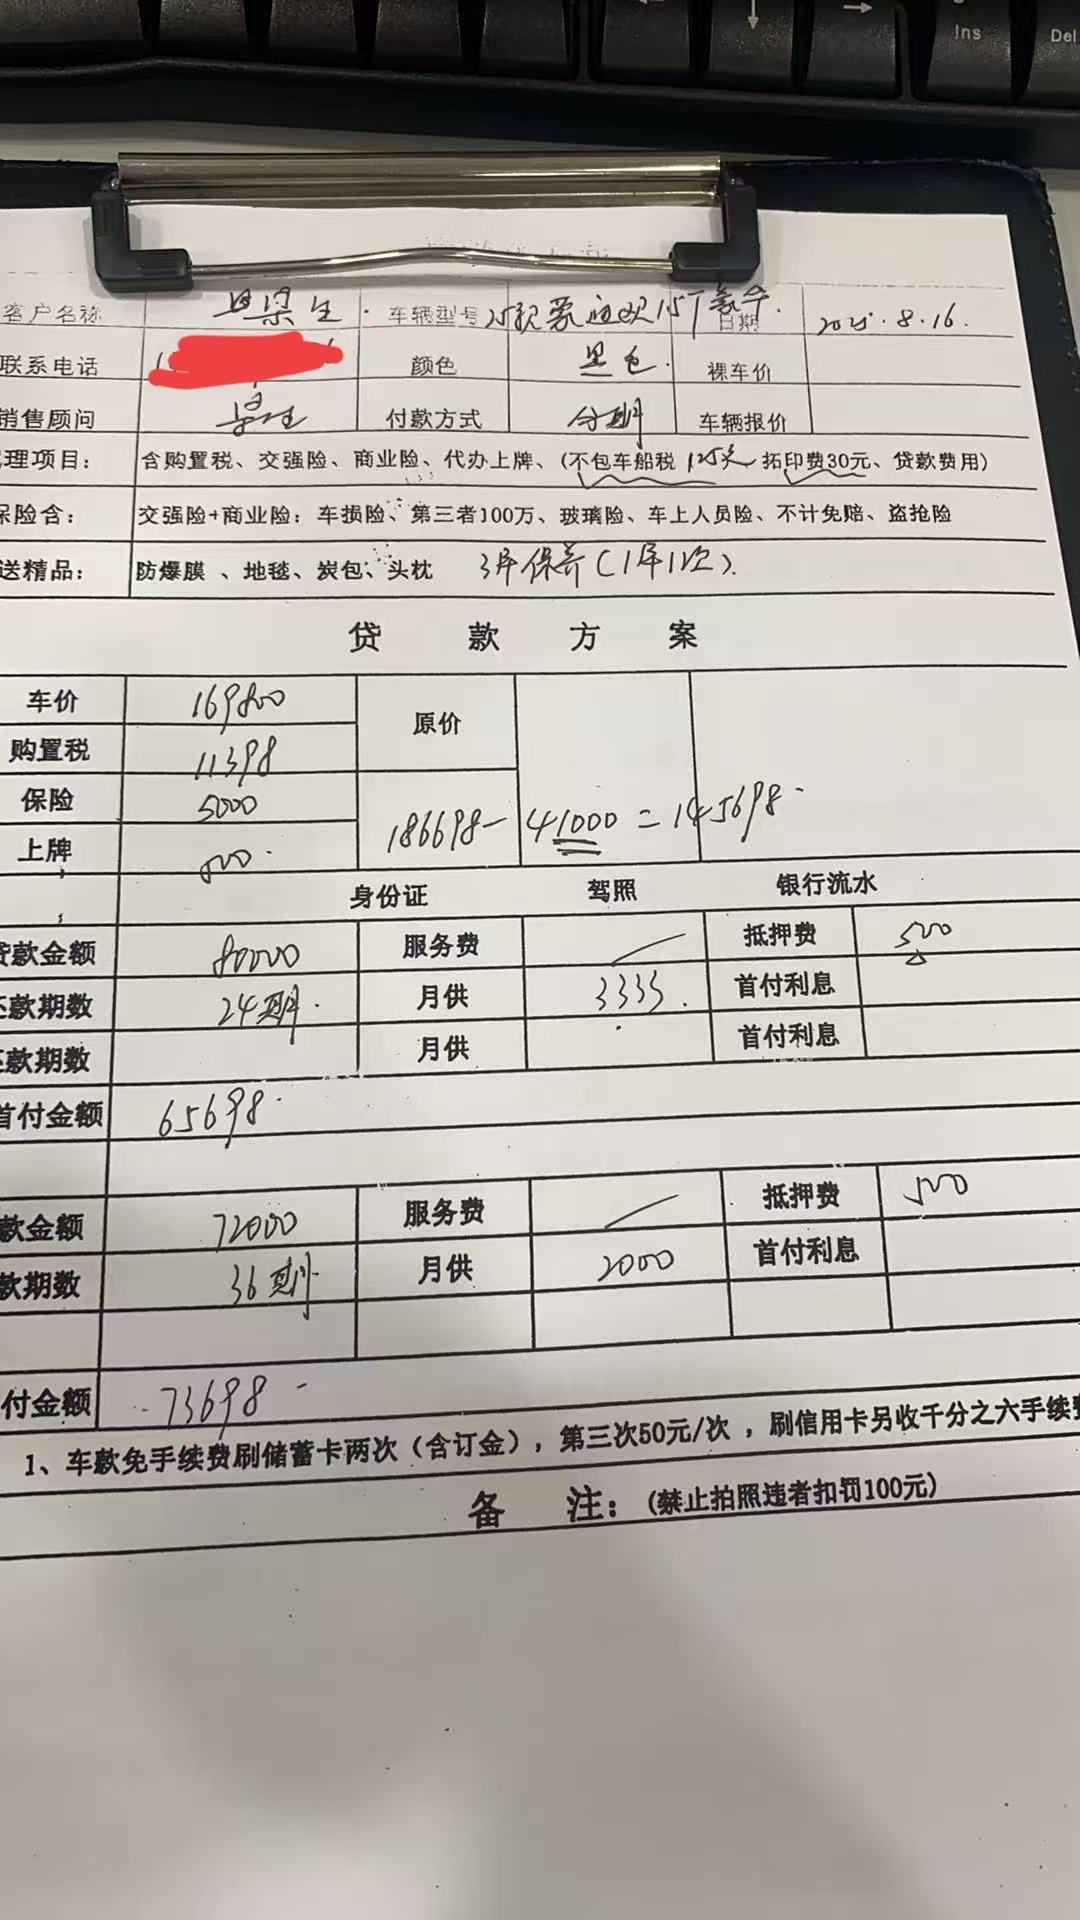 Ins
Del
客户名称 梁生. 车辆型号 25款蒙迪欧1.5T豪华. 日期 2025.8.16.
联系电话 颜色 黑色. 裸车价
销售顾问 付款方式 分期 车辆报价
理项目: 含购置税、交强险、商业险、代办上牌、(不包车船税 125元 拓印费30元、贷款费用)
保险含: 交强险+商业险: 车损险、第三者100万、玻璃险、车上人员险、不计免赔、盗抢险
送精品: 防爆膜、地毯、炭包、头枕 3年保养(1年1次).
贷款方案
车价 169800 原价
购置税 11398
保险 5000 186698-41000=145698.
上牌 500.
身份证 驾照 银行流水
贷款金额 80000 服务费 / 抵押费 500
还款期数 24期. 月供 3335. 首付利息
还款期数 月供 首付利息
首付金额 65698.
款金额 72000 服务费 / 抵押费 500
款期数 36期. 月供 2000 首付利息
付金额 73698-
1、车款免手续费刷储蓄卡两次(含订金),第三次50元/次,刷信用卡另收千分之六手续费
备 注: (禁止拍照违者扣罚100元)